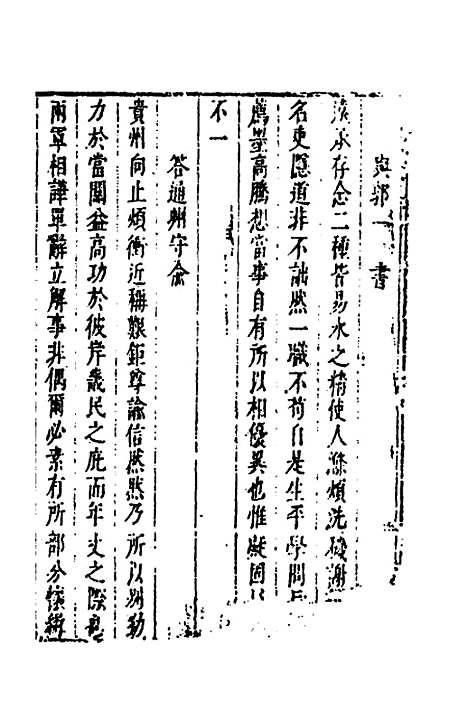 與郭一書
遠承存念二種皆易水之精使人滌煩洗硯謝
名吏隱道非不詘然一職不苟自是生平學問
薦墨高騰想當事自有所以相優異也惟凝圖
不一
答通州守俞
貴州向止煩衝近稱艱鉅尊諭信然然乃所以別動
力於當關益高功於彼岸畿民之庇而年丈之際
兩罩相譁單辭立解事非偶爾必素有所部分懷緝